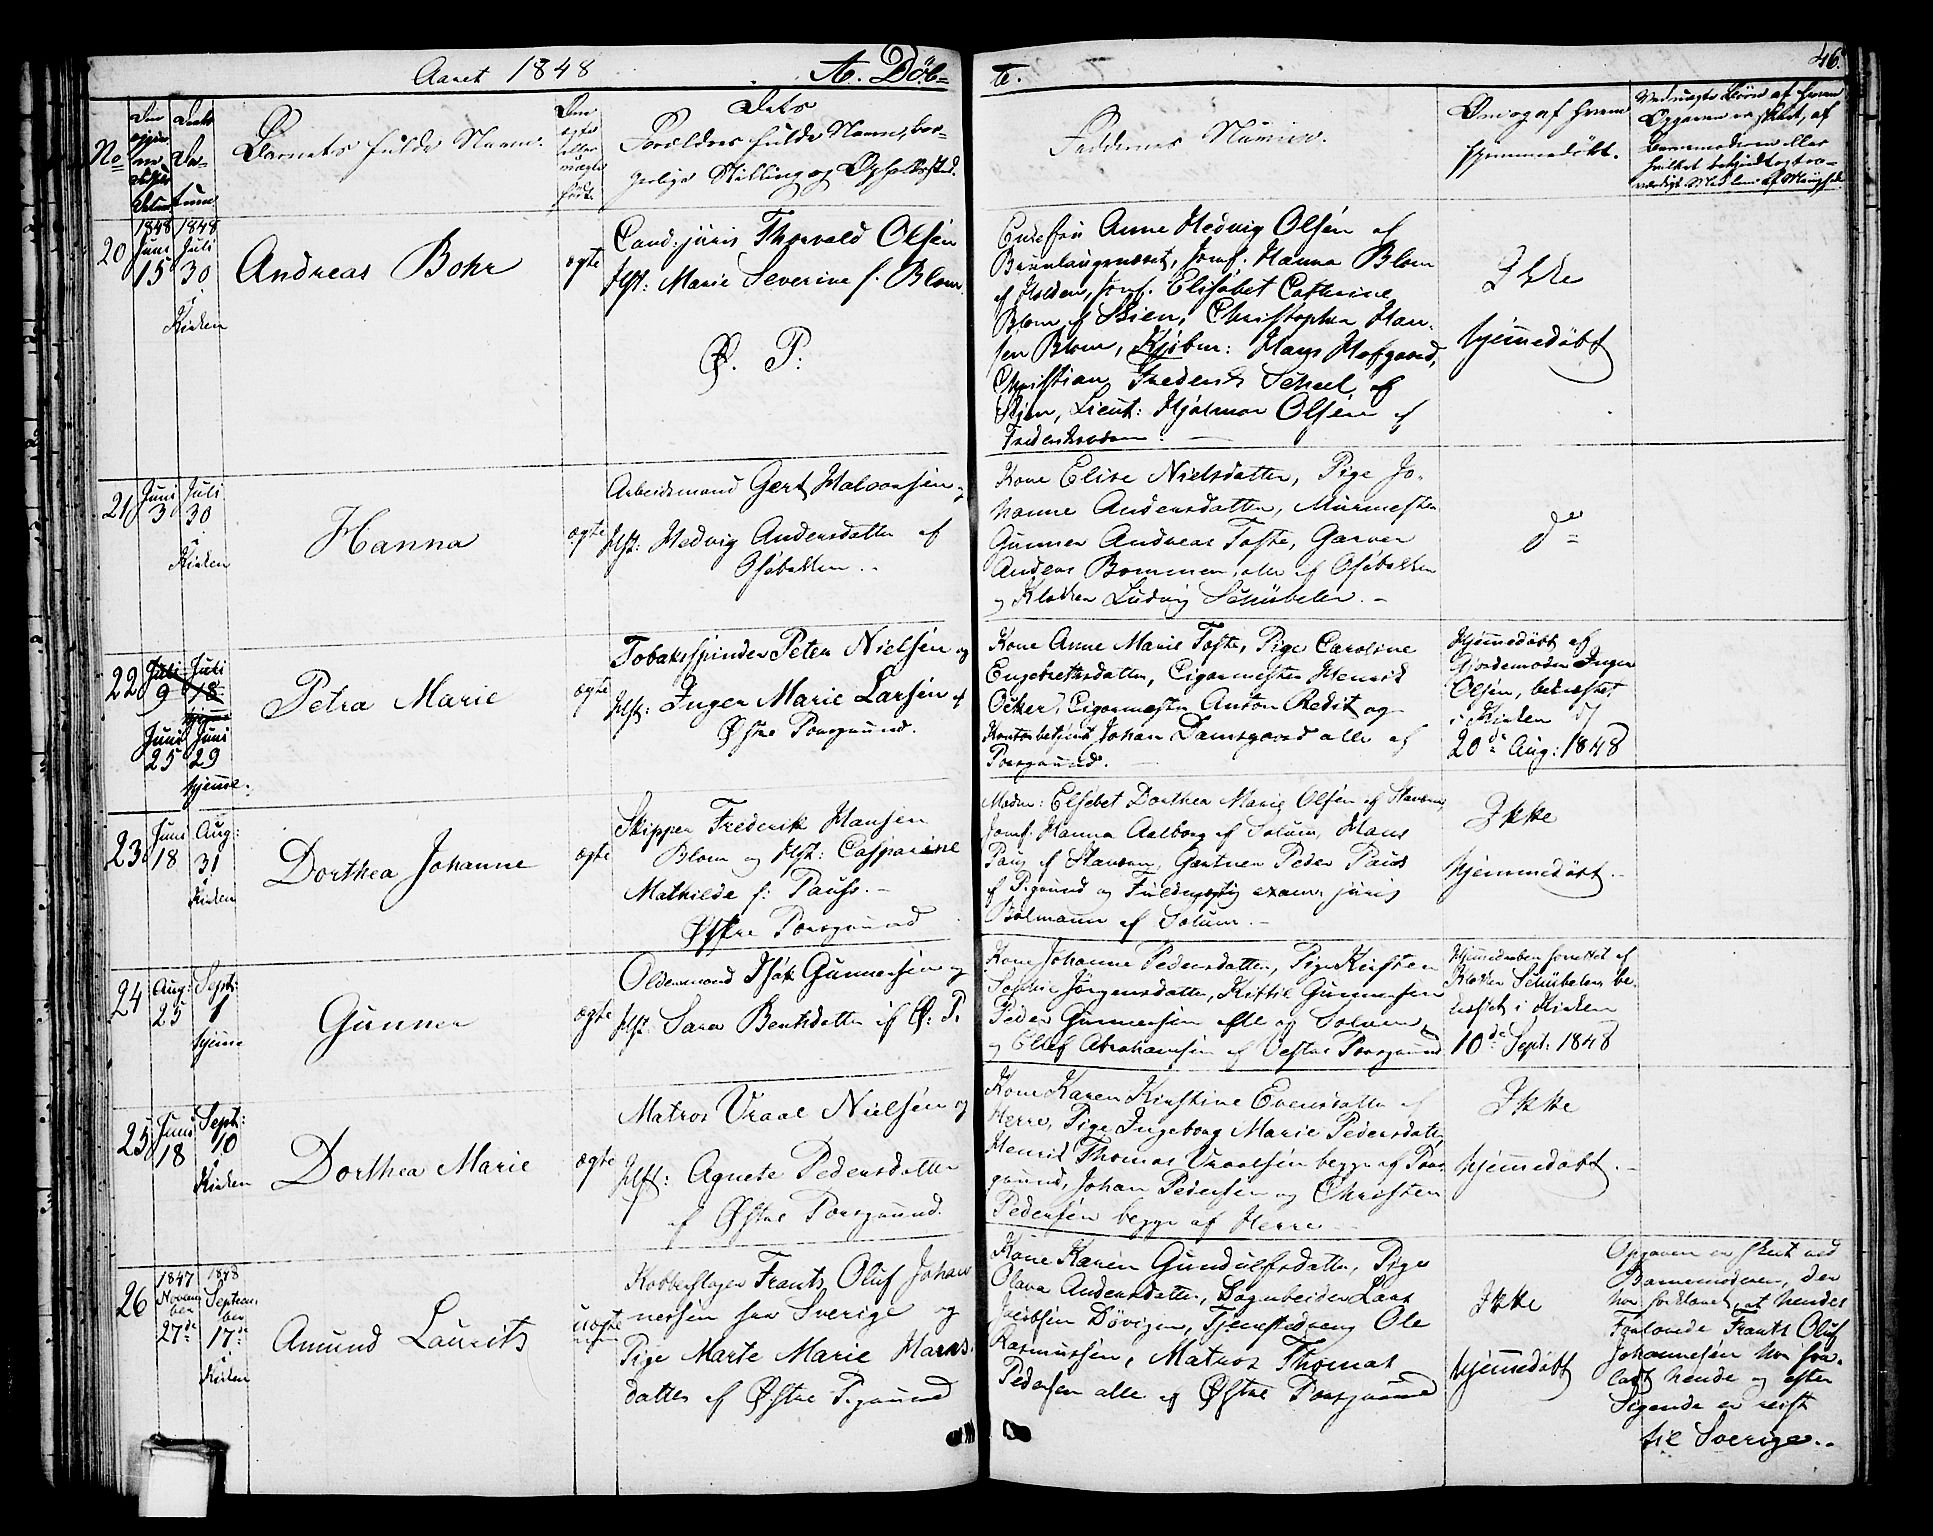 Aaret 1848
A. Døb=
te.
46.
No
Barnets fulde Navn.
Dets
Forældres fulde Navn, bor-
gerlige Stilling og Opholdssted.
Faddernes Navne.
Om og af hvem
hjemmedøbt.
20
1848
Juni
15
1848
Juli
30
i
Kirken
Andreas Bohr
ægte
Cand. juris Thorvald Olsen
Hst: Marie Severine f. Blom.
Ø. P:
Anne Hedvig Olsén af
Brunlaugnæset, Jomf. Hanna Blom
af Holden, Jomf. Elisabet Cathrine
Blom af Skien, Christopher Han-
sen Blom, Kjøbm: Hans Hofgaard,
Christian Frederik Scheel af
Skien, Lieut: Hjalmar Olsén af
Frederiksværn.
Ikke
hjemmedøbt
21
Juni
3
Juli
30
i
Kirken
Hanna
ægte
Arbeidsmand Gert Halvorsen og
Hst: Hedvig Andersdatter af
Osebakken.
Kone Elise Nielsdatter, Pige Jo-
hanne Andersdatter, Murmester
Gunner Andreas Tofte, Garver
Anders Bommen, alle af Osebakken
og Klokker Ludvig Schübeler.
do
22
Juli
9
Juli
18
hjemme
Juni
25
Juni
29
hjemme.
Petra Marie
ægte
Tobaksspinder Peter Nielsén og
Hst: Inger Marie Larsén af
Østre Porsgrund.
Kone Anne Marie Tofte, Pige Caroline
Engebrethsdatter, Cigarmester Henrik
Cigarmester Anton Redit og
Kontorbetjent Johan Damsgaard alle af
Porsgrund.
Hjemmedøbt af
Gjordemoder Inger
Olsén, bekræftet
i Kirken d
20de Aug: 1848
23
Juni
18
Aug:
31
i
Kirken
Dorthea Johanne
ægte
Skipper Frederik Hansen
Blom og Hst: Casparine
Mathilde f: Pauss.
Østre Porsgrund
Madm: Elsebet Dorthea Marie Olsén af
Jomf. Hanna Aalborg af Solum, Hans
Paus af Gartner Peder Paus
af P.grund og Fuldmægtig exam. juris
Bolmann af Solum.
Ikke
hjemmedøbt.
24
Aug:
25
Sept:
1
hjemme
Gunner
ægte
Oldermand Isak Gunnersen og
Hst: Sara Bentsdatter af Ø: P.
Kone Johanne Pedersdatter, Pige Kirsten
Sophie Jörgensdatter, Kittil Gunnersen
Peder Gunnersen alle af Solum,
og Ellef Abrahamsen af Vestre Porsgrund
Hjemmedaaben forrettet af
Klokker Schübeler, be-
kræftet i Kirken
10de Sept: 1848
25
Juni
18
Sept:
10
i
Kirken
Dorthea Marie
ægte
Matros Vraal Nielsén og
Hst: Agnete Pedersdatter
af Østre Porsgrund.
Kone Karen Kirstine Evensdatter af
Herre, Pige Ingeborg Marie Pedersdatter,
Henrik Thomas Vraalsén begge af Pors-
grund, Johan Pedersén og Christen
Pedersén begge af Herre
Ikke
hjemmedøbt.
26
1847
Novem-
ber
27de
1848
Septem-
ber
17de
i
Kirken
Amund Lauritz
uægte
Kobberslager Frants Oluf Johan-
nessen fra Sverige og
Pige Marte Marie Hans-
datter af Østre P.grund
Kone Karen Gundulfsdatter, Pige
Olava Andersdatter, Sagarbeider Lars
Jacobsen Dövigen, Tjenestedreng Ole
Rasmussén, Matros Thomas
Pedersen alle af Østre Porsgrund
Ikke
hjemmedøbt
Opgaven er skeet ved
Barnemoderen, der
har forklaret, at hendes
Forlovede Frants Oluf
Johannesén har for-
ladt hende og efter
Sigende er reist
til Sverige.